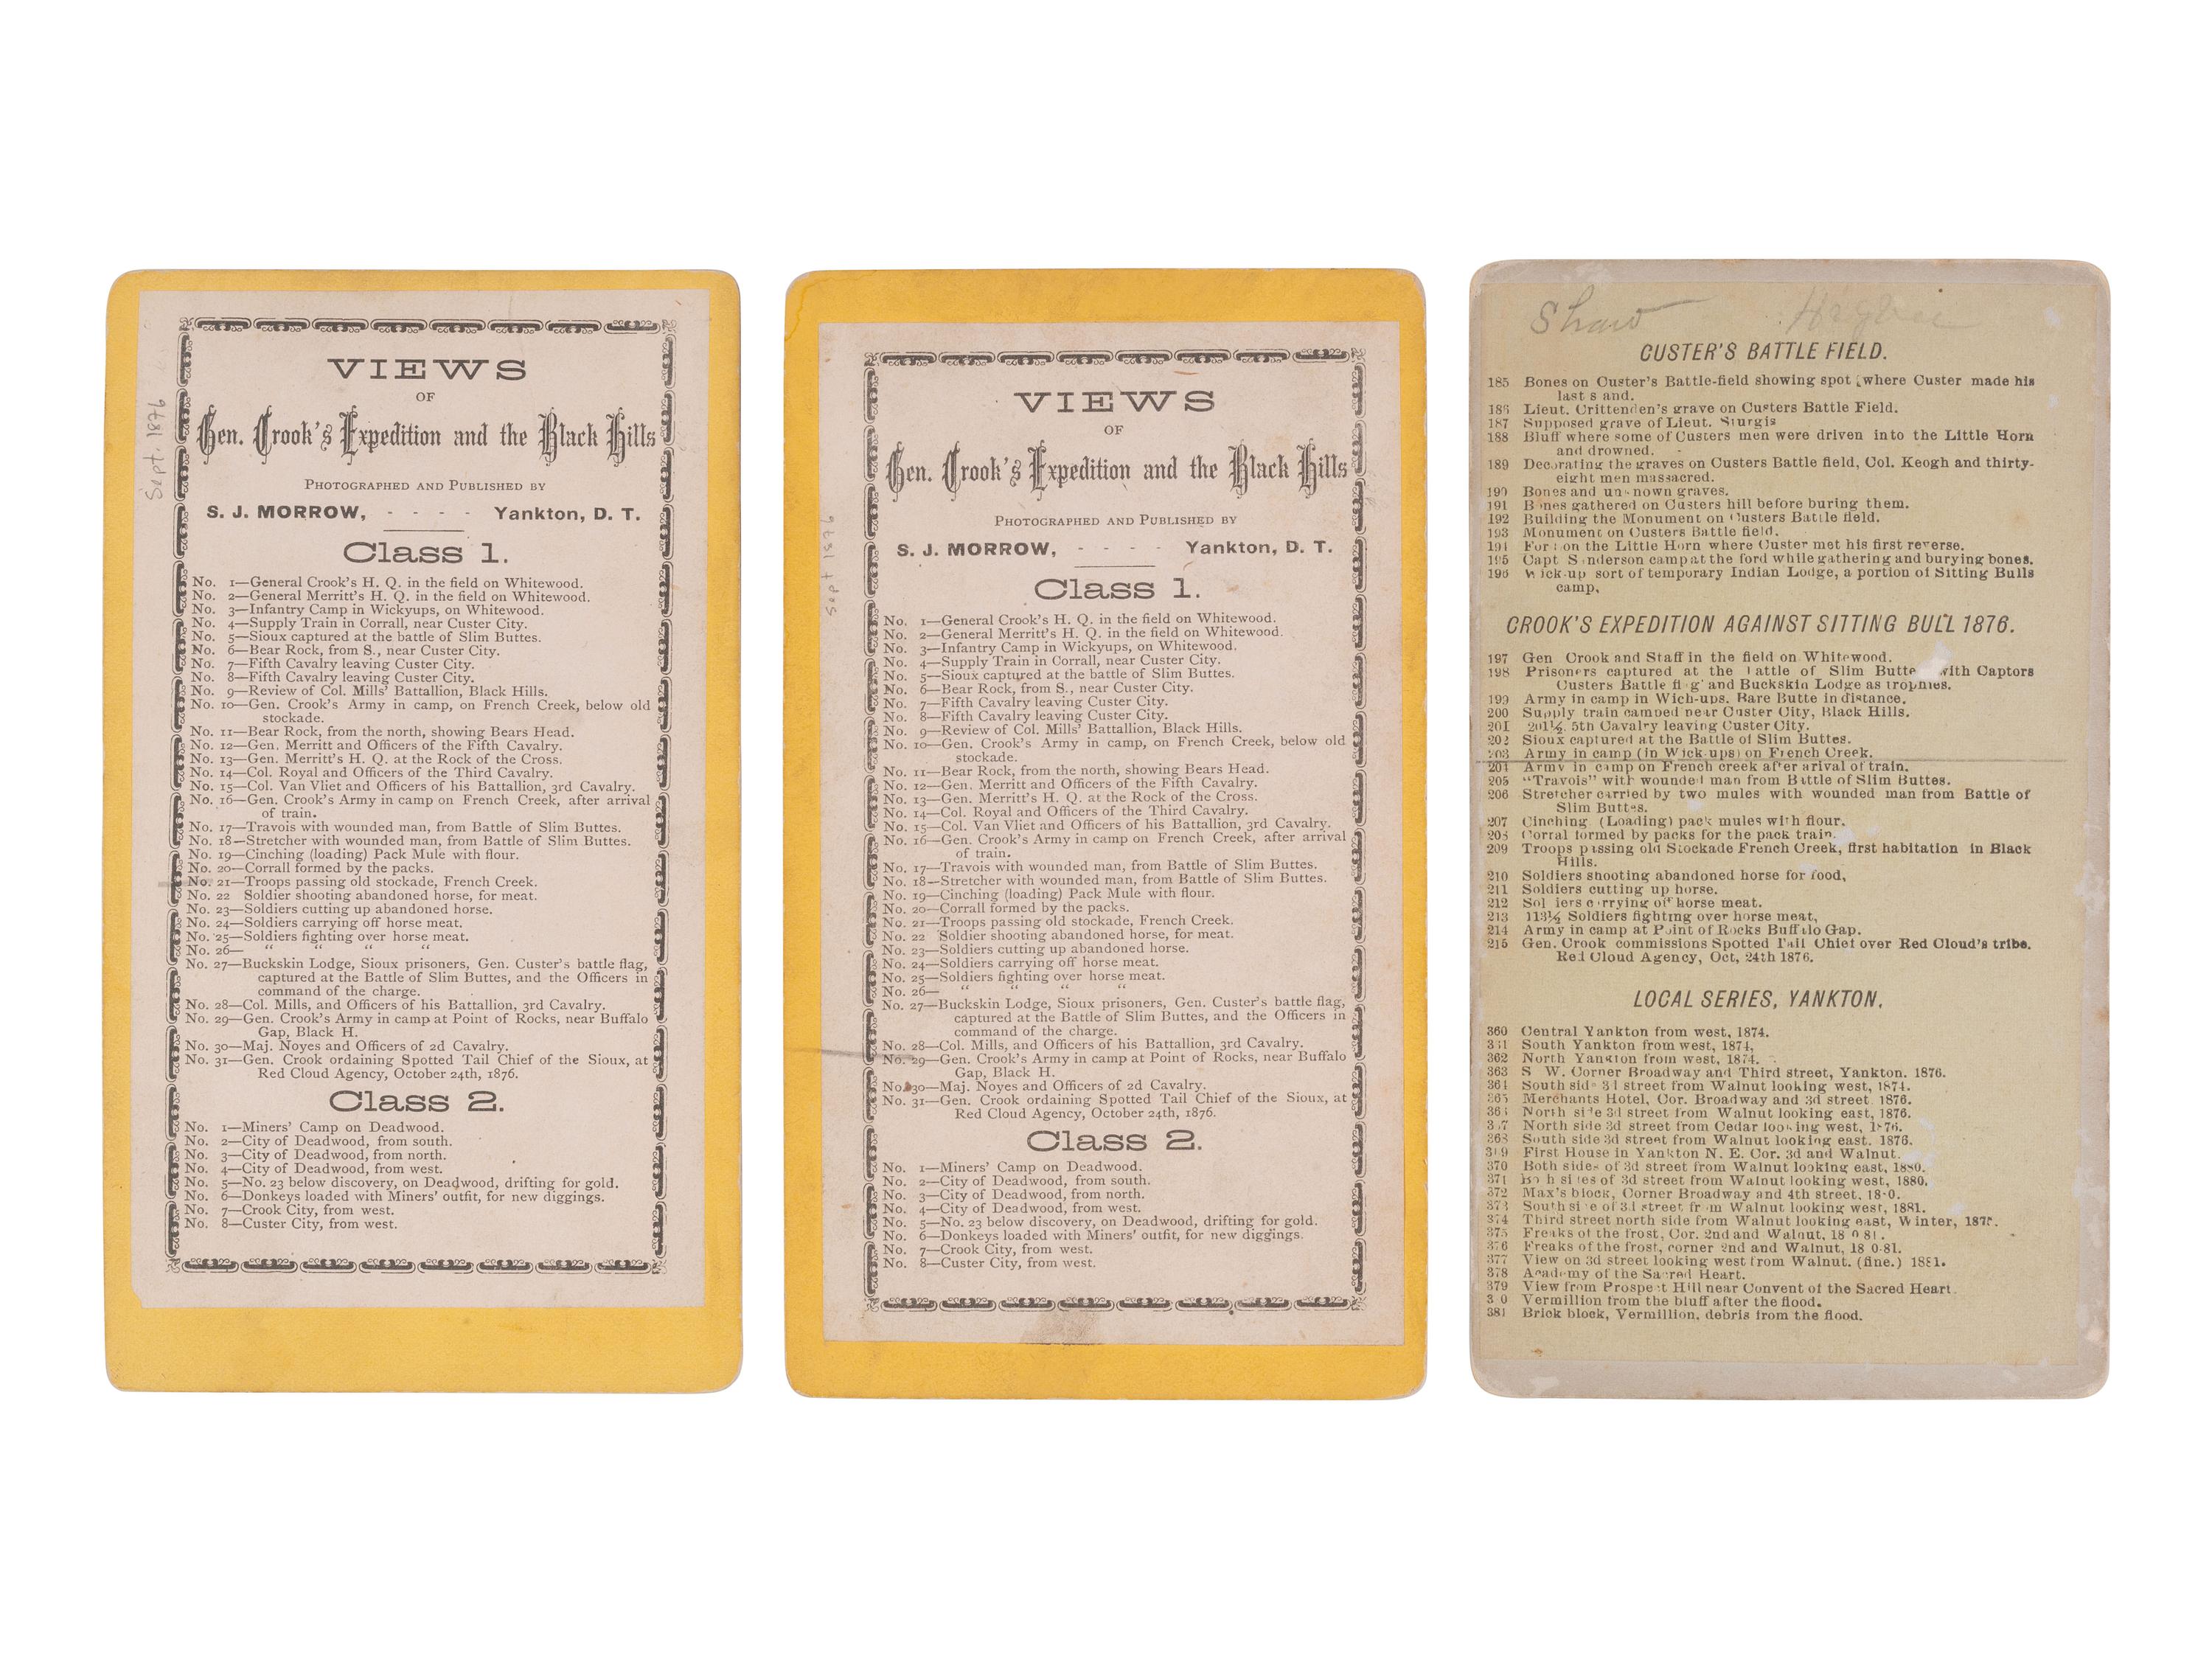 Sept. 1876
VIEWS
OF
Gen. Crook's Expedition and the Black Hills
PHOTOGRAPHED AND PUBLISHED BY
S. J. MORROW, - - - - Yankton, D. T.
Class 1.
No. 1—General Crook's H. Q. in the field on Whitewood.
No. 2—General Merritt's H. Q. in the field on Whitewood.
No. 3—Infantry Camp in Wickyups, on Whitewood.
No. 4—Supply Train in Corrall, near Custer City.
No. 5—Sioux captured at the battle of Slim Buttes.
No. 6—Bear Rock, from S., near Custer City.
No. 7—Fifth Cavalry leaving Custer City.
No. 8—Fifth Cavalry leaving Custer City.
No. 9—Review of Col. Mills' Battallion, Black Hills.
No. 10—Gen. Crook's Army in camp, on French Creek, below old
stockade.
No. 11—Bear Rock, from the north, showing Bears Head.
No. 12—Gen. Merritt and Officers of the Fifth Cavalry.
No. 13—Gen. Merritt's H. Q. at the Rock of the Cross.
No. 14—Col. Royal and Officers of the Third Cavalry.
No. 15—Col. Van Vliet and Officers of his Battallion, 3rd Cavalry.
No. 16—Gen. Crook's Army in camp on French Creek, after arrival
of train.
No. 17—Travois with wounded man, from Battle of Slim Buttes.
No. 18—Stretcher with wounded man, from Battle of Slim Buttes.
No. 19—Cinching (loading) Pack Mule with flour.
No. 20—Corrall formed by the packs.
No. 21—Troops passing old stockade, French Creek.
No. 22 Soldier shooting abandoned horse, for meat.
No. 23—Soldiers cutting up abandoned horse.
No. 24—Soldiers carrying off horse meat.
No. 25—Soldiers fighting over horse meat.
No. 26— " " " "
No. 27—Buckskin Lodge, Sioux prisoners, Gen. Custer's battle flag,
captured at the Battle of Slim Buttes, and the Officers in
command of the charge.
No. 28—Col. Mills, and Officers of his Battallion, 3rd Cavalry.
No. 29—Gen. Crook's Army in camp at Point of Rocks, near Buffalo
Gap, Black H.
No. 30—Maj. Noyes and Officers of 2d Cavalry.
No. 31—Gen. Crook ordaining Spotted Tail Chief of the Sioux, at
Red Cloud Agency, October 24th, 1876.
Class 2.
No. 1—Miners' Camp on Deadwood.
No. 2—City of Deadwood, from south.
No. 3—City of Deadwood, from north.
No. 4—City of Deadwood, from west.
No. 5—No. 23 below discovery, on Deadwood, drifting for gold.
No. 6—Donkeys loaded with Miners' outfit, for new diggings.
No. 7—Crook City, from west.
No. 8—Custer City, from west.
Sept 1876
VIEWS
OF
Gen. Crook's Expedition and the Black Hills
PHOTOGRAPHED AND PUBLISHED BY
S. J. MORROW, - - - - Yankton, D. T.
Class 1.
No. 1—General Crook's H. Q. in the field on Whitewood.
No. 2—General Merritt's H. Q. in the field on Whitewood.
No. 3—Infantry Camp in Wickyups, on Whitewood.
No. 4—Supply Train in Corrall, near Custer City.
No. 5—Sioux captured at the battle of Slim Buttes.
No. 6—Bear Rock, from S., near Custer City.
No. 7—Fifth Cavalry leaving Custer City.
No. 8—Fifth Cavalry leaving Custer City.
No. 9—Review of Col. Mills' Battallion, Black Hills.
No. 10—Gen. Crook's Army in camp, on French Creek, below old
stockade.
No. 11—Bear Rock, from the north, showing Bears Head.
No. 12—Gen. Merritt and Officers of the Fifth Cavalry.
No. 13—Gen. Merritt's H. Q. at the Rock of the Cross.
No. 14—Col. Royal and Officers of the Third Cavalry.
No. 15—Col. Van Vliet and Officers of his Battallion, 3rd Cavalry.
No. 16—Gen. Crook's Army in camp on French Creek, after arrival
of train.
No. 17—Travois with wounded man, from Battle of Slim Buttes.
No. 18—Stretcher with wounded man, from Battle of Slim Buttes.
No. 19—Cinching (loading) Pack Mule with flour.
No. 20—Corrall formed by the packs.
No. 21—Troops passing old stockade, French Creek.
No. 22 Soldier shooting abandoned horse, for meat.
No. 23—Soldiers cutting up abandoned horse.
No. 24—Soldiers carrying off horse meat.
No. 25—Soldiers fighting over horse meat.
No. 26— " " " "
No. 27—Buckskin Lodge, Sioux prisoners, Gen. Custer's battle flag,
captured at the Battle of Slim Buttes, and the Officers in
command of the charge.
No. 28—Col. Mills, and Officers of his Battallion, 3rd Cavalry.
No. 29—Gen. Crook's Army in camp at Point of Rocks, near Buffalo
Gap, Black H.
No. 30—Maj. Noyes and Officers of 2d Cavalry.
No. 31—Gen. Crook ordaining Spotted Tail Chief of the Sioux, at
Red Cloud Agency, October 24th, 1876.
Class 2.
No. 1—Miners' Camp on Deadwood.
No. 2—City of Deadwood, from south.
No. 3—City of Deadwood, from north.
No. 4—City of Deadwood, from west.
No. 5—No. 23 below discovery, on Deadwood, drifting for gold.
No. 6—Donkeys loaded with Miners' outfit, for new diggings.
No. 7—Crook City, from west.
No. 8—Custer City, from west.
Shaw
CUSTER'S BATTLE FIELD.
185 Bones on Custer's Battle-field showing spot where Custer made his
last s and.
186 Lieut. Crittenden's grave on Custers Battle Field.
187 Supposed grave of Lieut. Sturgis
188 Bluff where some of Custers men were driven into the Little Horn
and drowned.
189 Decorating the graves on Custers Battle field, Col. Keogh and thirty-
eight men massacred.
190 Bones and unknown graves.
191 Bones gathered on Custers hill before buring them.
192 Building the Monument on Custers Battle field.
193 Monument on Custers Battle field.
194 Ford on the Little Horn where Custer met his first reverse.
195 Capt Sanderson camp at the ford while gathering and burying bones.
196 Wick-up sort of temporary Indian Lodge, a portion of Sitting Bulls
camp,
CROOK'S EXPEDITION AGAINST SITTING BULL 1876.
197 Gen Crook and Staff in the field on Whitewood.
198 Prisoners captured at the Battle of Slim Butte with Captors
Custers Battle flag and Buckskin Lodge as trophies.
199 Army in camp in Wich-ups. Bare Butte in distance.
200 Supply train camped near Custer City, Black Hills.
201 201½, 5th Cavalry leaving Custer City.
202 Sioux captured at the Battle of Slim Buttes.
203 Army in camp (in Wick-ups) on French Creek.
204 Army in camp on French creek after arival of train.
205 "Travois" with wounded man from Battle of Slim Buttes.
206 Stretcher carried by two mules with wounded man from Battle of
Slim Buttes.
207 Cinching (Loading) pack mules with flour.
208 Corral formed by packs for the pack train.
209 Troops passing old Stockade French Creek, first habitation in Black
Hills.
210 Soldiers shooting abandoned horse for food,
211 Soldiers cutting up horse.
212 Soldiers carrying off horse meat.
213 113½ Soldiers fighting over horse meat,
214 Army in camp at Point of Rocks Buffalo Gap.
215 Gen. Crook commissions Spotted Tail Chief over Red Cloud's tribe.
Red Cloud Agency, Oct, 24th 1876.
LOCAL SERIES, YANKTON.
360 Central Yankton from west, 1874.
361 South Yankton from west, 1874,
362 North Yankton from west, 1874.
363 S W. Corner Broadway and Third street, Yankton. 1876.
364 South side 3d street from Walnut looking west, 1874.
365 Merchants Hotel, Cor. Broadway and 3d street 1876.
366 North side 3d street from Walnut looking east, 1876.
367 North side 3d street from Cedar looking west, 1876.
368 South side 3d street from Walnut looking east. 1876.
369 First House in Yankton N. E. Cor. 3d and Walnut.
370 Both sides of 3d street from Walnut looking east, 1880.
371 Both sides of 3d street from Walnut looking west, 1880,
372 Max's block, Corner Broadway and 4th street, 18-0.
373 South side of 3d street from Walnut looking west, 1881.
374 Third street north side from Walnut looking east, Winter,
375 Freaks of the frost, Cor. 2nd and Walnut, 18 0 81.
376 Freaks of the frost, corner 2nd and Walnut, 18 0-81.
377 View on 3d street looking west from Walnut. (fine.) 1881.
378 Academy of the Sacred Heart.
379 View from Prospect Hill near Convent of the Sacred Heart.
3 0 Vermillion from the bluff after the flood.
381 Brick block, Vermillion, debris from the flood.